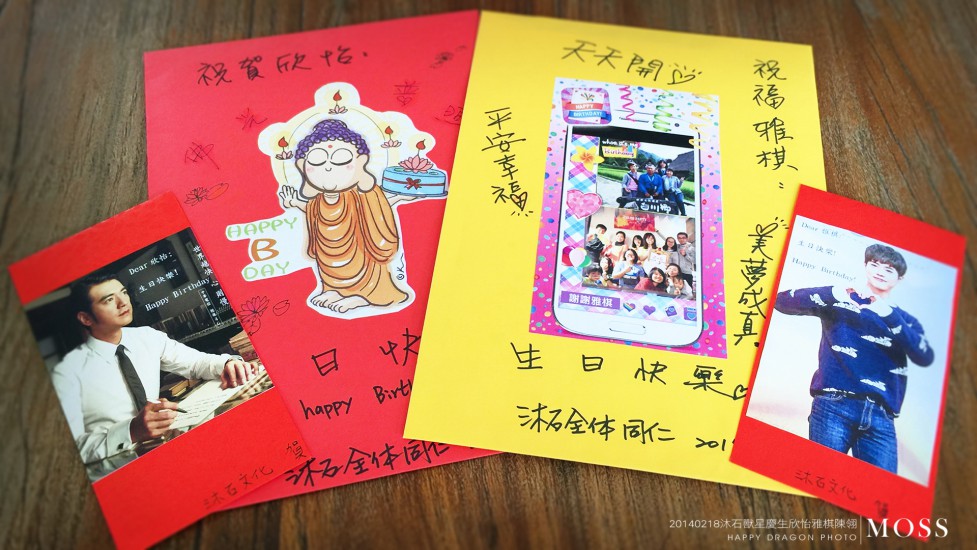 祝賀欣怡:
HAPPY
B
DAY
日快
happy Birt
沐石全体同仁
天天開心
祝福雅棋:
平安幸福
美夢成真
HAPPY
BIRTHDAY!
謝謝雅棋
生日快樂
沐石全体同仁 201
Dear 欣怡:
生日快樂!
Happy Birthday!
沐石文化 賀
生日快樂!
Happy Birthday!
沐石文化
20140218沐石獸星慶生欣怡雅棋陳翎
HAPPY DRAGON PHOTO
MOSS